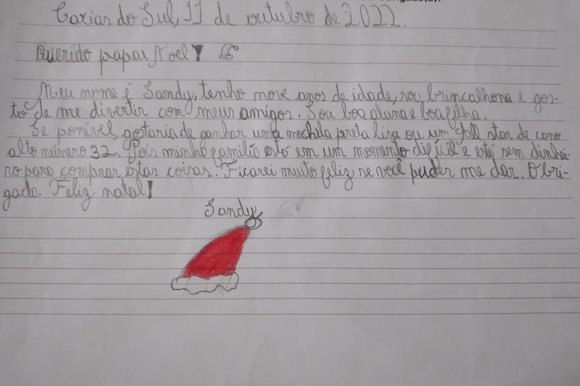 Caxias do Sul, 11 de outubro de 2022.
Querido papai Noel!
Meu nome é Sandy, tenho nove anos de idade, sou brincalhona e gos-
to de me divertir com meus amigos. Sou boa aluna e boa filha.
Se possível gostaria de ganhar uma mochila preta lisa ou um All star de cano
alto número 32. Pois minha família está em um momento difícil e está sem dinhei-
ro para comprar estas coisas. Ficarei muito feliz se você puder me dar. Obri-
gada. Feliz natal!
Sandy